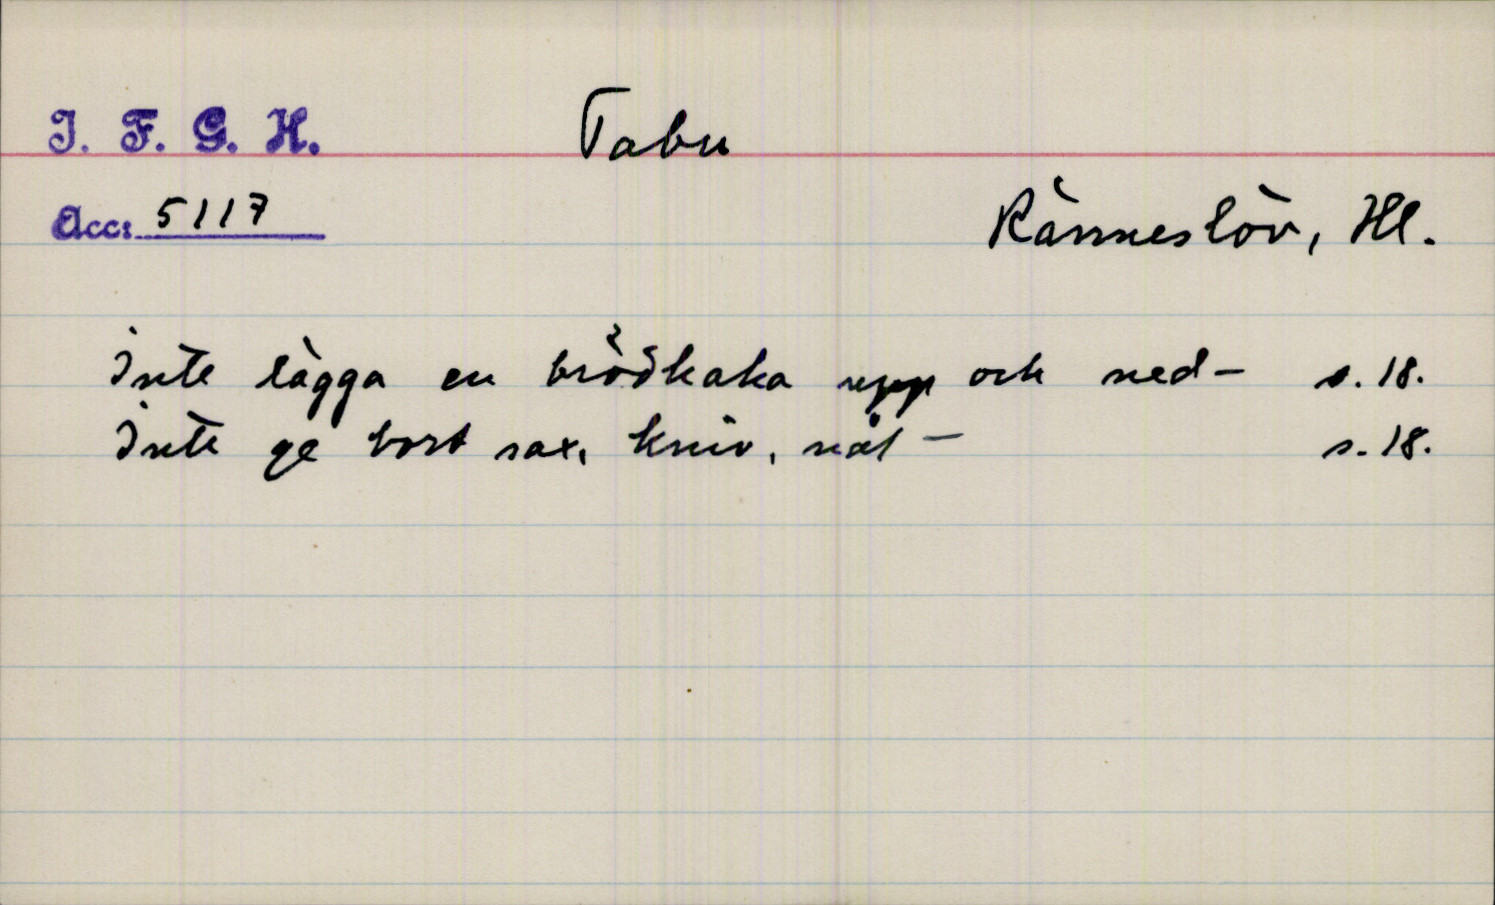 I. F. G. H.
Tabu
Acc: 5117
Ränneslöv, Hl.
Inte lägga en brödkaka upp och ned- s. 18.
Inte ge bort sax, kniv, nål - s. 18.